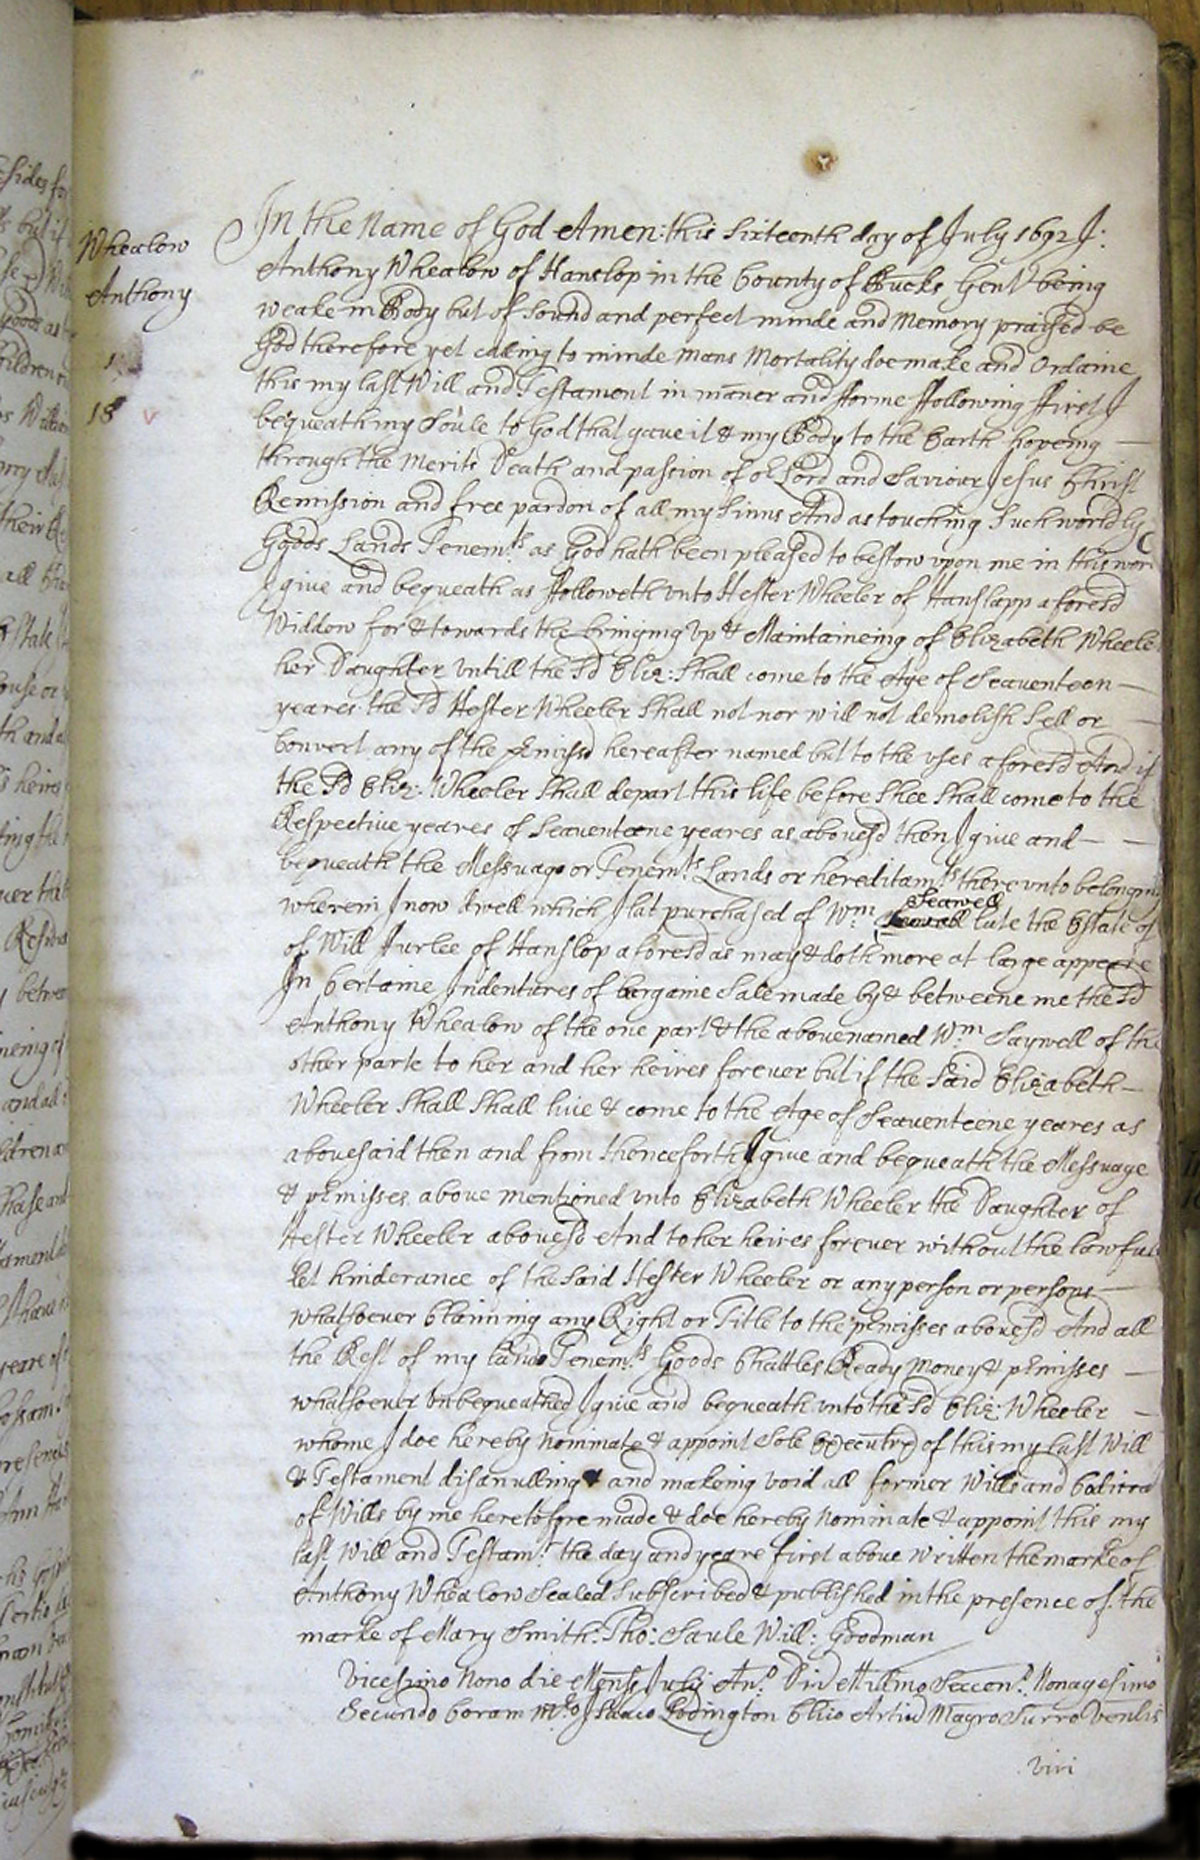 Whealow
Anthony
18 v
In the Name of God Amen: this Sixteenth day of July 1692 J:
Anthony Whealow of Hanslop in the County of Bucks Gent being
weake in Body but of Sound and perfect minde and Memory praised be
God therefore yet calling to minde mans Mortality doe make and Ordaine
this my last Will and Testament in maner and fforme ffollowing ffirst J
bequeath my Soule to God that gave it & my Body to the Earth hopeing
through the Merits Death and passion of or Lord and Saviour Jesus Christ
Remission and free pardon of all my Sinns And as touching Such worldly
Goods Lands Tenemts as God hath been pleased to bestow vpon me in this wor
J give and bequeath as ffolloweth vnto Hester Wheeler of Hanslapp aforesd
Widdow for & towards the bringing Vp & Maintaineing of Elizabeth Wheele
her Daughter vntill the Sd Eliz: Shall come to the Age of Seaventeen
yeares the Sd Hester Wheeler Shall not nor will not demolish Sell or
Convert any of the pmissd hereafter named but to the vses aforesd And if
the Sd Eliz: Wheeler Shall depart this life before Shee Shall come to the
Respective yeares of Seaventeene yeares as abovesd then J give and
bequeath the Messuage or Tenemts Lands or hereditamts there vnto belonging
wherein J now dwell which J lat purchased of Wm Seawell late the Estate of
of Will Jurlee of Hanslop aforesd as may & doth more at large appeare
Jn Certaine Jndentures of bargaine Sale made by & betweene me the Sd
Anthony Whealow of the one part & the abovenamed Wm Saywell of the
other parte to her and her heires forever but if the Said Elizabeth
Wheeler Shall Shall live & come to the Age of Seaventeene yeares as
abovesaid then and from thenceforth J give and bequeath the Messuage
& pmisses above mentioned vnto Elizabeth Wheeler the Daughter of
Hester Wheeler abovesd And to her heires forever without the lawfull
let hinderance of the Said Hester Wheeler or any person or persons
whatsoever Claiming any Right or Title to the pmisses abovesd And all
the Rest of my lands Tenemts Goods Chattles Ready Money & pmisses
whatsoever Vnbequeathed J give and bequeath vnto the Sd Eliz: Wheeler
whome J doe hereby Nominate & appoint Sole Executrx of this my last Will
& Testament disanulling & and makeing void all former Wills and Codicra
of Wills by me heretofore made & doe hereby Nominate & appoint this my
last Will and Testamt the day and yeare first above Written the marke of
Anthony Whealow Sealed Subscribed & published in the presence of the
marke of Mary Smith: Tho: Saule Will: Goodman
Vicesimo Nono die Mensis Julij Ano Dni Millimo Sexceno Nonagesimo
Secundo Coram Mro Isaaco Lodington Clico Artiu Magro Surro Venlis
viri